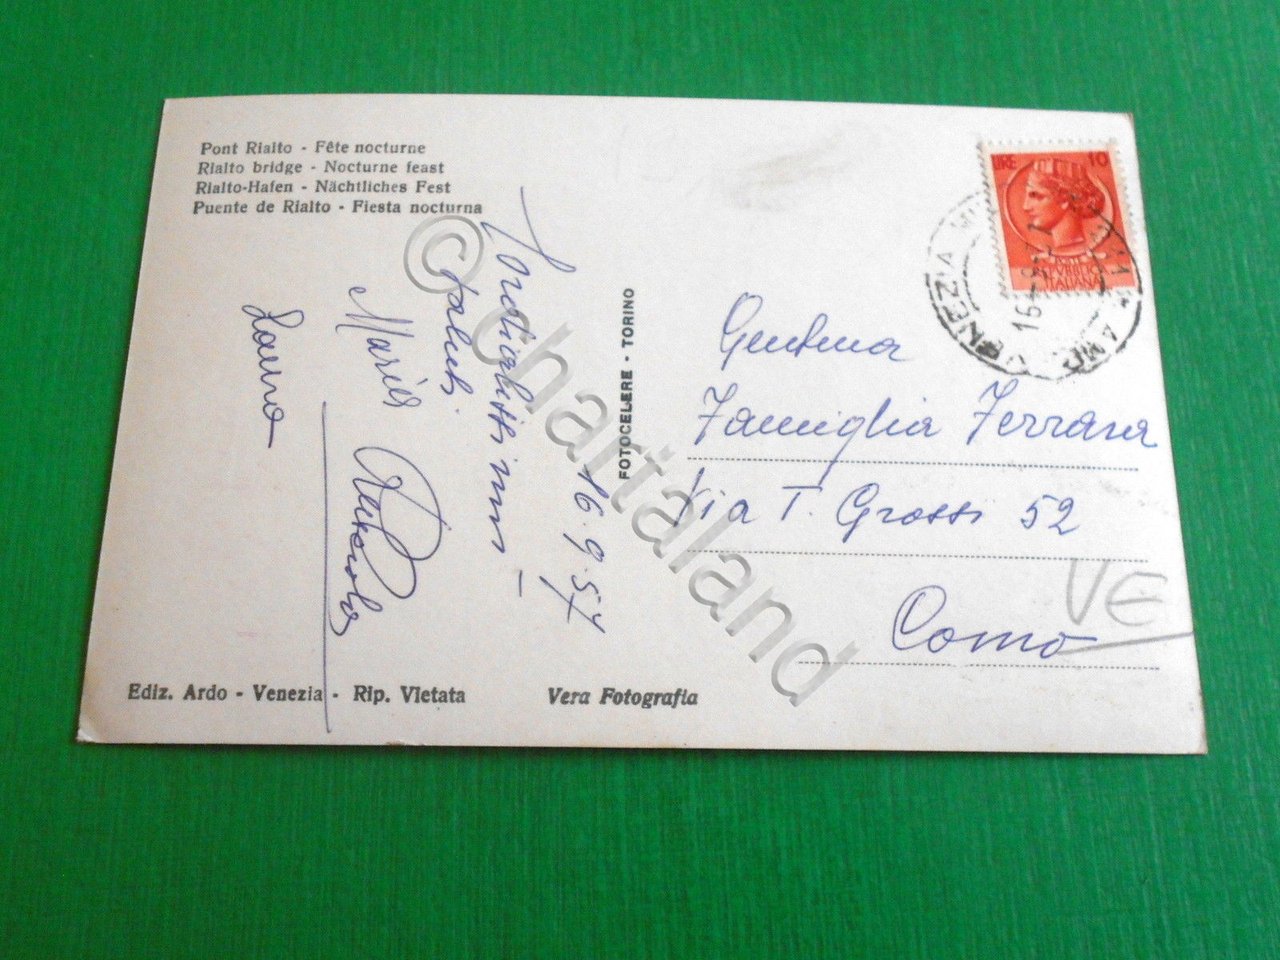 Pont Rialto - Fête nocturne
Rialto bridge - Nocturne feast
Rialto-Hafen - Nächtliches Fest
Puente de Rialto - Fiesta nocturna
16.9.57
saluti
Maria
Lauro
FOTOCELERE - TORINO
LIRE 10
REPUBBLICA
ITALIANA
VENEZIA
16
Famiglia Ferrara
Via T. Grossi 52
Como
VE
Ediz. Ardo - Venezia - Rip. Vietata
Vera Fotografia
© chartaland